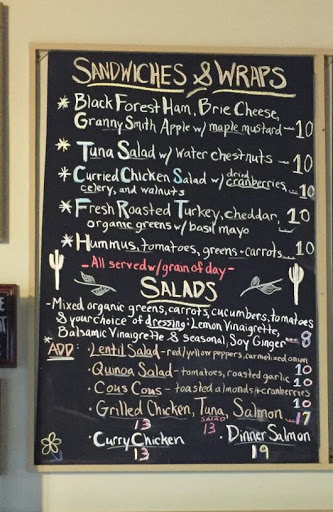 SANDWICHES & WRAPS
* Black Forest Ham, Brie Cheese,
Granny Smith Apple w/ maple mustard — 10
* Tuna Salad w/ water chestnuts — 10
* Curried Chicken Salad w/ dried cranberries, 10
celery, and walnuts
* Fresh Roasted Turkey, cheddar, 10
organic greens w/ basil mayo
* Hummus, tomatoes, greens + carrots — 10
- All served w/ grain of day -
SALADS
- Mixed organic greens, carrots, cucumbers, tomatoes
& your choice of dressing: Lemon Vinaigrette,
Balsamic Vinaigrette & seasonal, Soy Ginger — 8
* ADD: · Lentil Salad - red/yellow peppers, carmelized onion
10
· Quinoa Salad - tomatoes, roasted garlic 10
· Cous Cous - toasted almonds + cranberries
10
· Grilled Chicken, Tuna, Salmon — 17
13 SALAD 13
· Curry Chicken · Dinner Salmon
13 19